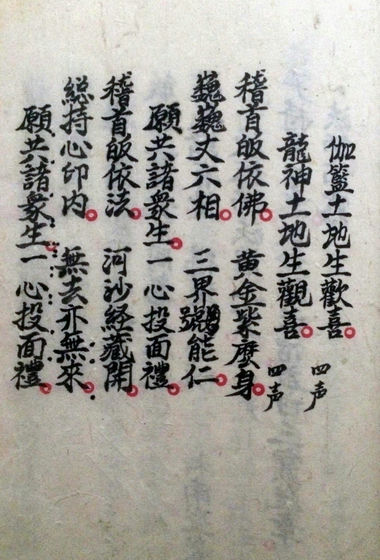 伽籃土地生歡喜 四声
龍神土地生觀喜 四声
稽首皈依佛 黄金紫麼身
巍巍丈六相 三界號能仁
願共諸衆生一心投面禮
稽首皈依法 河沙経蔵開
総持心印内 無去亦無來
願共諸衆生一心投面禮